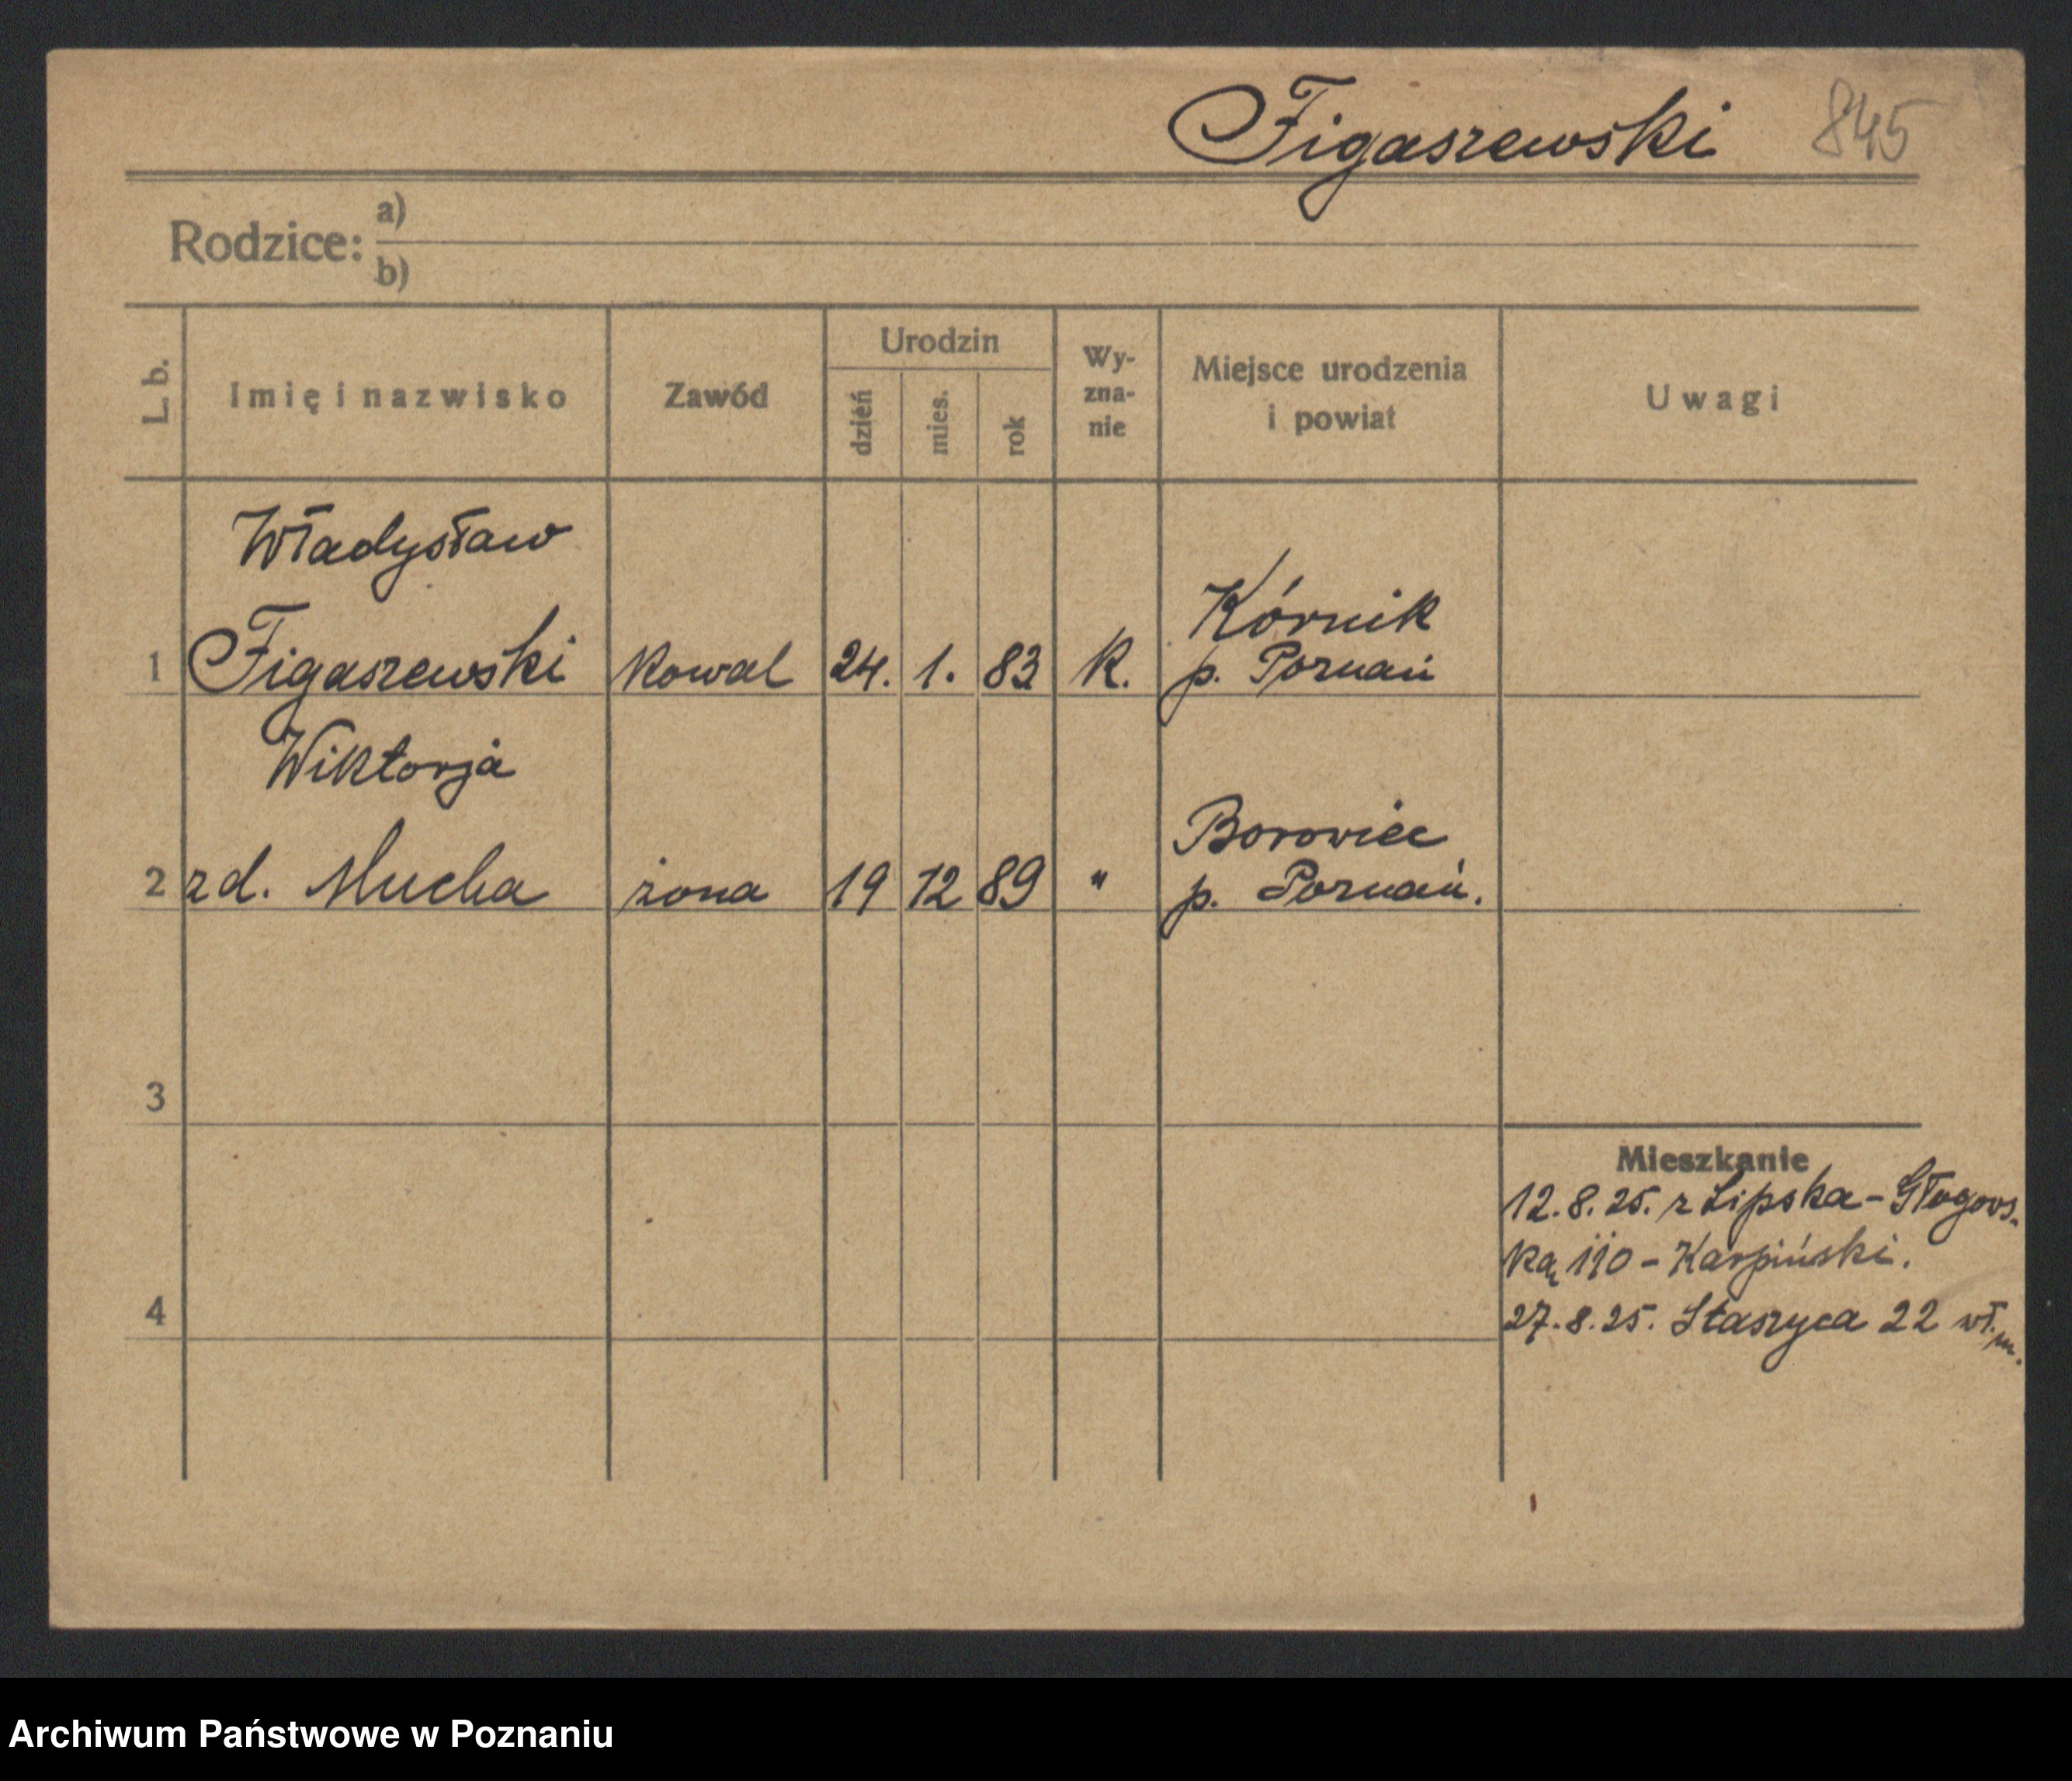 Figaszewski 845
Rodzice: a)
b)
L. b. Imię i nazwisko Zawód Urodzin dzień mies. rok Wy-zna-nie Miejsce urodzenia i powiat Uwagi
Władysław
1 Figaszewski kowal 24. 1. 83 K. Kórnik p. Poznań
Wiktorja
2 zd. Mucha żona 19 12 89 " Borowiec p. Poznań.
3
Mieszkanie
12.8.25. z Lipska - Głogows-
ką 110 - Karpiński.
4
27.8.25. Staszyca 22 wł. m.
Archiwum Państwowe w Poznaniu